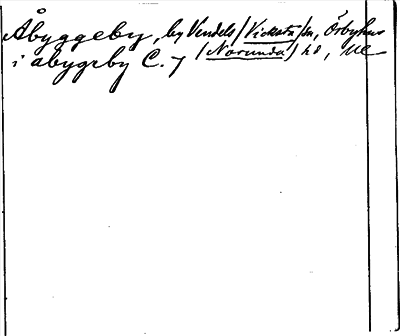 Åbyggeby, by Vendels / Vicksta / sn, Örbyhus
i abygrby C. 7 / Norunda / hd, Ul